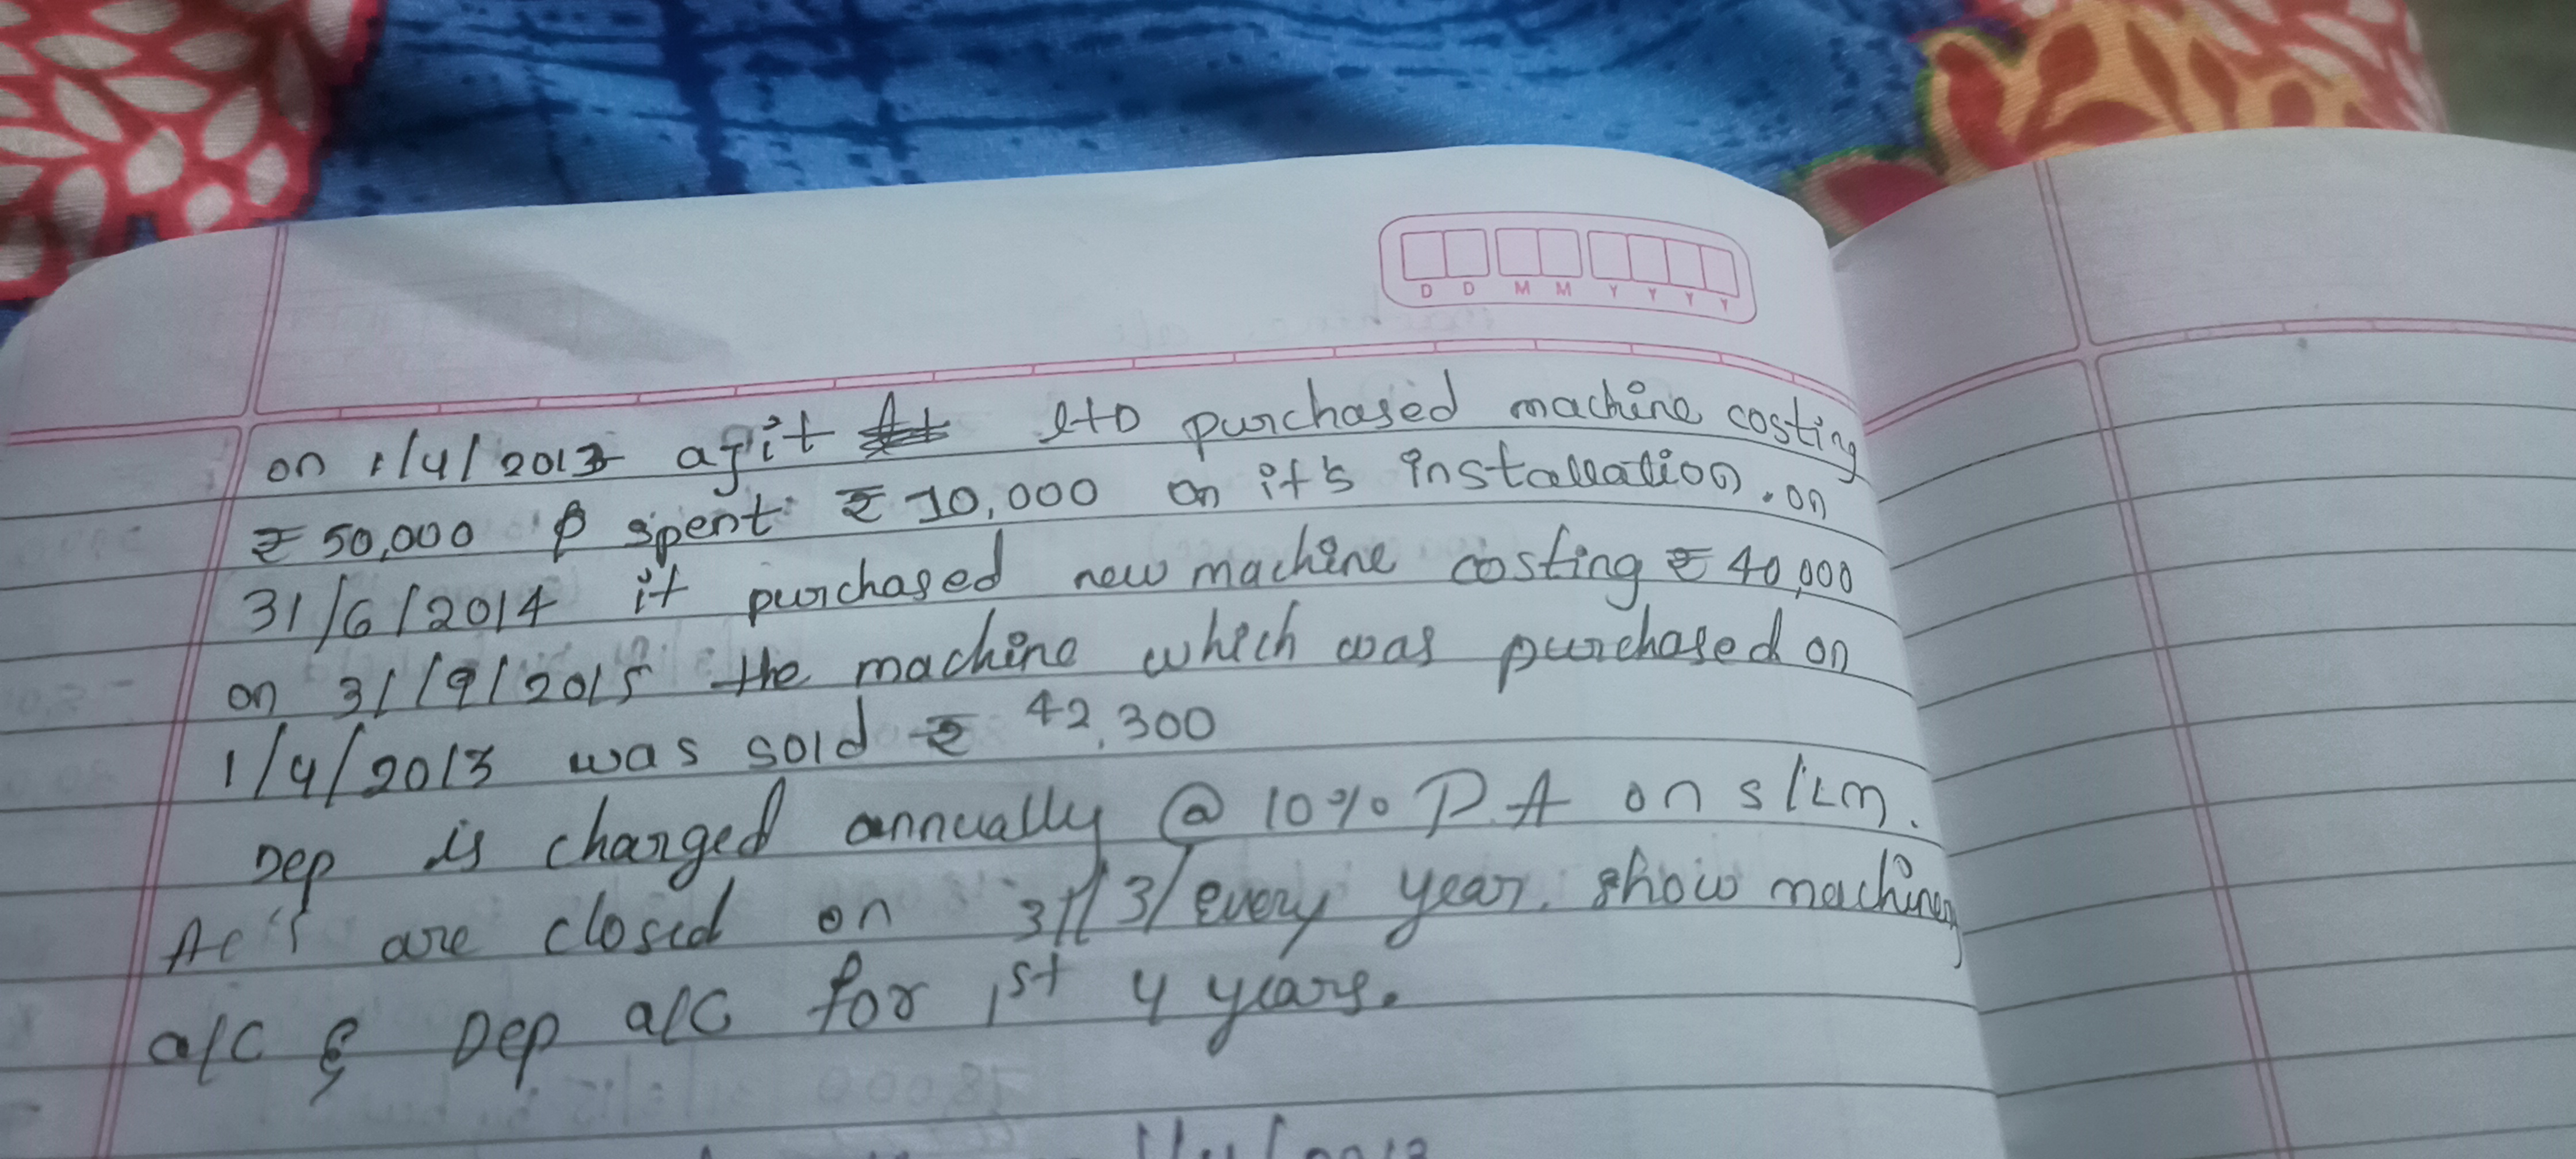 D D M M Y Y Y Y
on 1/4/2013 ajit ltd purchased machine costing
₹ 50,000 & spent ₹ 10,000 on it's installation. on
31/6/2014 it purchased new machine costing ₹ 40,000
on 31/9/2015 the machine which was purchased on
1/4/2013 was sold ₹ 42,300
Dep is charged annually @ 10% P.A on SLM.
Ac's are closed on 31/3/every year. show machinery
a/c & Dep a/c for 1st 4 years.